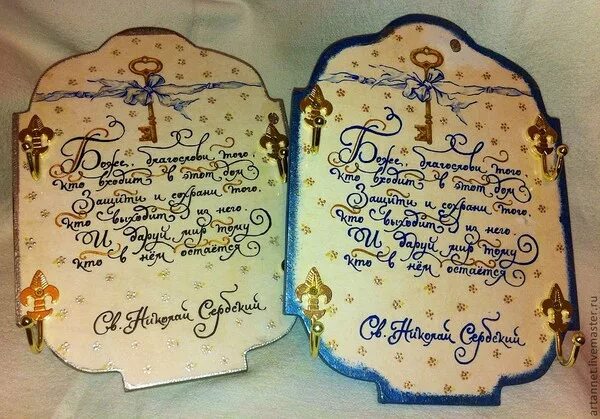 Боже, благослови того,
кто входит в этот дом
Защити и сохрани того,
кто выходит из него.
И даруй мир тому
кто в нём остаётся
Св. Николай Сербский
Боже, благослови того,
кто входит в этот дом
Защити и сохрани того,
кто выходит из него.
И даруй мир тому
кто в нём остаётся
Св. Николай Сербский
artannet.livemaster.ru